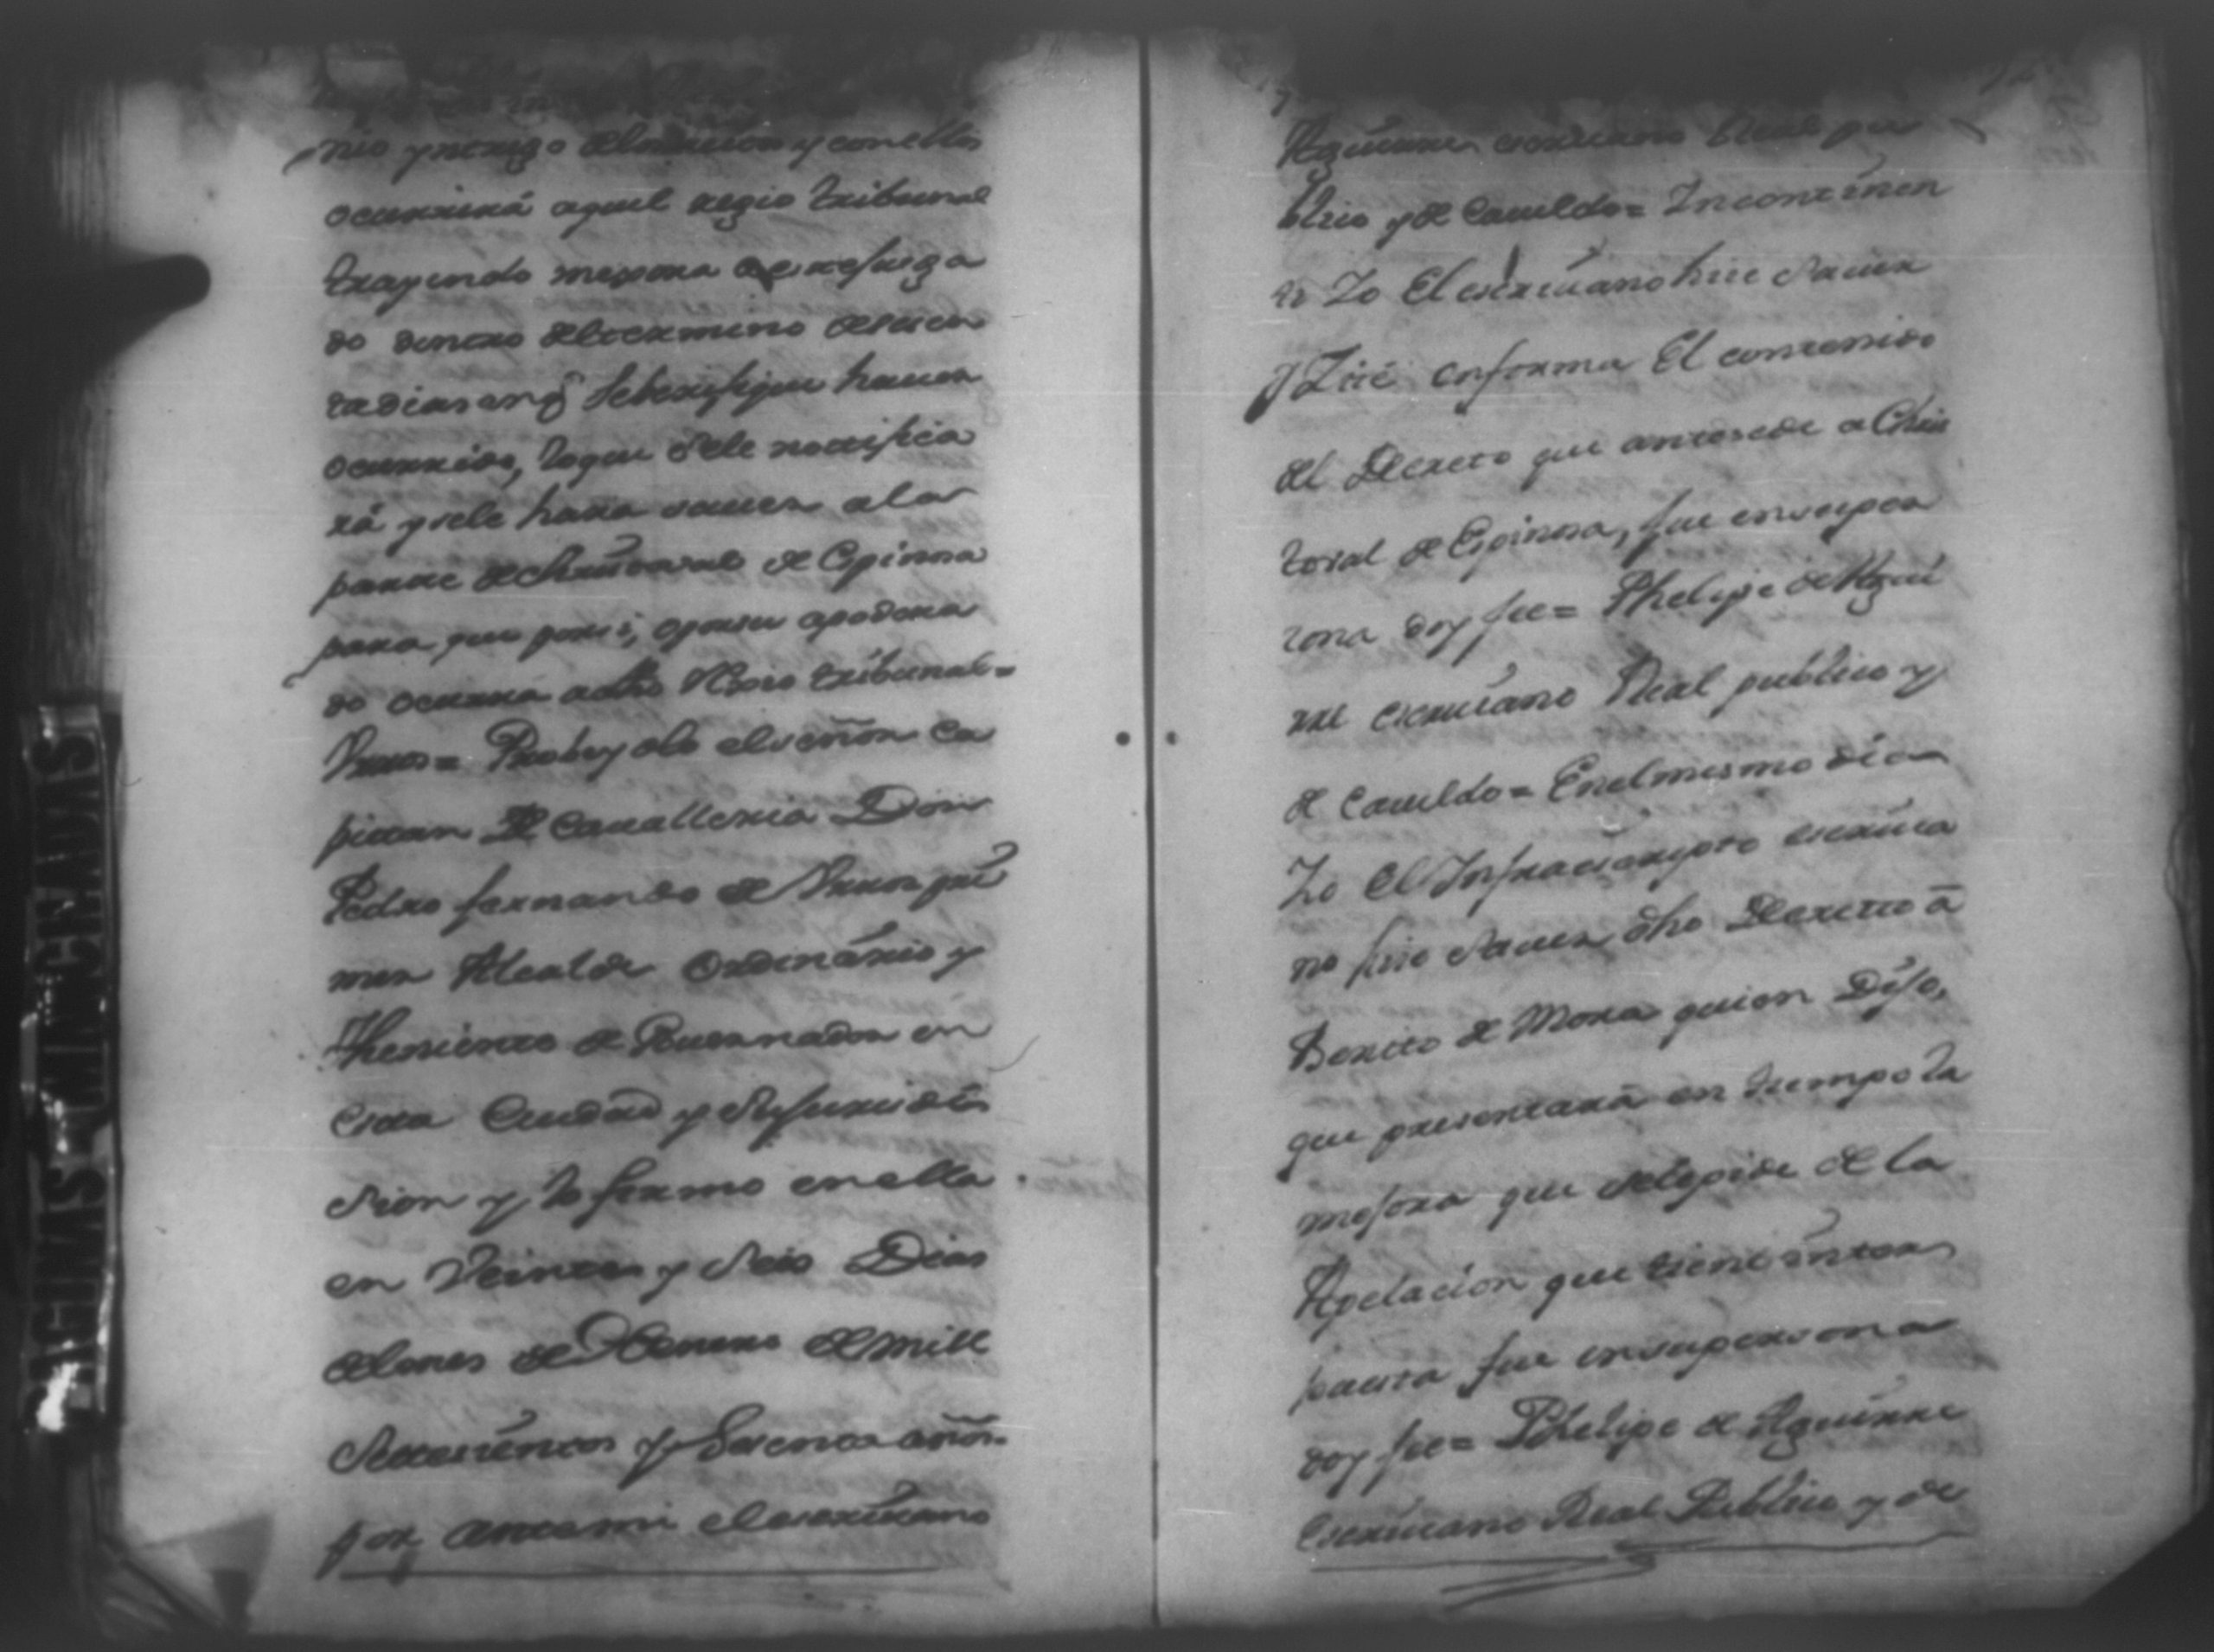 ocurrirá aquel regio tribunal
trayendo mejora de su Jusga
do dentro del termino de sien
ta dias en q̃ se berifique hauer
ocurrido, lo que se le notifica
rá y se le hara sauer a la
parte de Christoval de Espinosa
para que por si, o por su apodera
do ocurra a dho Rexio tribunal =
Probeyolo el señor Ca
pitan De Cavalleria Don
Pedro fernando de pri
mer Alcalde ordinario y
Theniente de Guernador en
esta Ciudad y su Jurisdic
sion y lo firmo en ella
en Veinte y Seis Dias
del mes de Henero de mill
Setesientos y Sesenta años
por ante mi el escriuano
Aguirre escriuano Real pu
blico y de Cauildo = Incontinen
te Yo El escriuano hise Sauer
y Leí en forma El contenido
del Decreto que antesede a Chris
toval de Espinosa, fue en su per
sona doy fee = Phelipe de Agui
rre escriuano Real publico y
de Cauildo = En el mismo dia
Yo El Infraescripto escriua
no hise Sauer dho Decreto á
Benito de Mora quien Dijo,
que presentará en tiempo la
mejora que se le pide de la
Apelacion que tiene inter
puesta fue en su persona
doy fee = Phelipe de Aguirre
Escriuano Real Publico y de